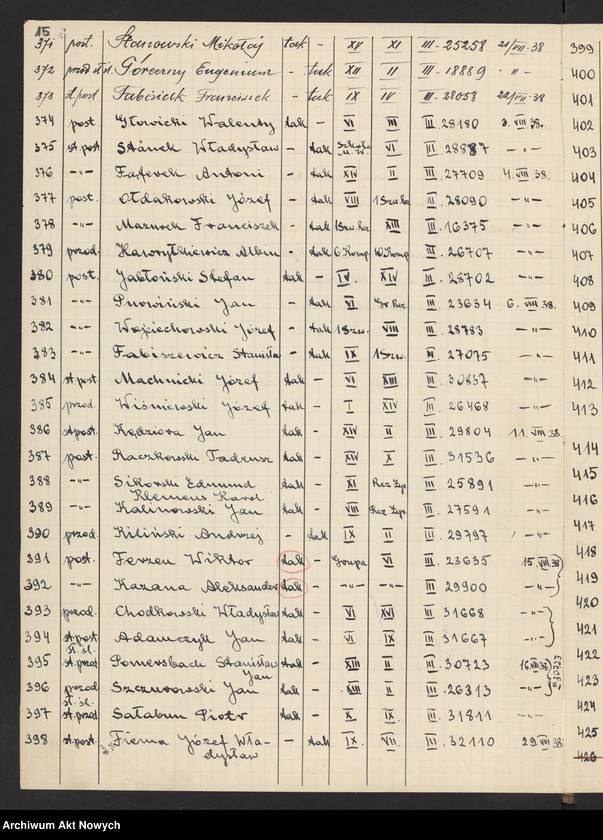 15
371 post. Stanowski Mikołaj tak - XV XI III - 25258 21/VII.38 399
372 przod st.sł. Góreczny Eugeniusz - tak XII II III - 18889 -"- 400
373 st.post Fabisiak Franciszek - tak IX IV III - 28058 22/VII.38 401
374 post Głowicki Walenty tak - VI III III. 28180 3.VIII.38. 402
375 st.post Stanek Władysław - tak VI III. 28887 -"- 403
376 -"- Antoni - tak XIV II III. 27709 4.VIII.38. 404
377 post. Ołdakowski Józef - tak VIII III. 28090 -"- 405
378 -"- Mazurek Franciszek - tak XIII III. 16375 -"- 406
379 przod. Hawryłkiewicz Albin - tak 6 Komp. 10 Komp III. 26707 -"- 407
380 post. Jabłoński Stefan tak - IV. XIV III. 28702 -"- 408
381 -"- Jan - tak VI Gr Rez III. 23634 6.VIII.38. 409
382 -"- Wojciechowski Józef - tak 1 Szw. VIII III. 28783 -"- 410
383 -"- Fabiszewicz Stanisław - tak IX 1 Szw. III. 27075 -"- 411
384 st.post Machnicki Józef tak - VI XIII III. 30837 -"- 412
385 przod. Wiśniewski Józef tak - I XIV III. 26468 -"- 413
386 st.post. Kędziora Jan tak - XIV II III. 29804 11.VIII.38. 414
387 post. Raczkowski Tadeusz tak - XIV X III. 31536 -"- 415
388 -"- Sikorski Edmund tak - XI III. 25891 -"- 416
Klemens Karol
389 -"- Kalinowski Jan tak - VIII III. 27591 -"- 417
390 przod. Kiliński Andrzej - tak IX II III. 29797 -"- 418
391 post. Ferzen Wiktor tak Grupa VI III. 23635 15.VIII.38 419
392 -"- Kazana Aleksander tak -"- -"- III 29900 -"- 420
393 przod. Chodkowski Władysław tak - VI XVI III. 31668 -"- 421
394 st.post Adamczyk Jan tak - VI IX III. 31667 -"- 422
395 st.sł. st.przod Pomersbach Stanisław tak - XIII II III. 30723 16.VIII.38 III 30723 423
Jan
396 przod Szczurowski Jan tak - XIII II III. 26313 -"- 424
397 st.sł. st.przod Sałabun Piotr tak - X IX III. 31811 -"- 425
398 st.post. Józef Wła- - tak IX. VII. III. 32110 29.VIII.38 426
dysław
Archiwum Akt Nowych